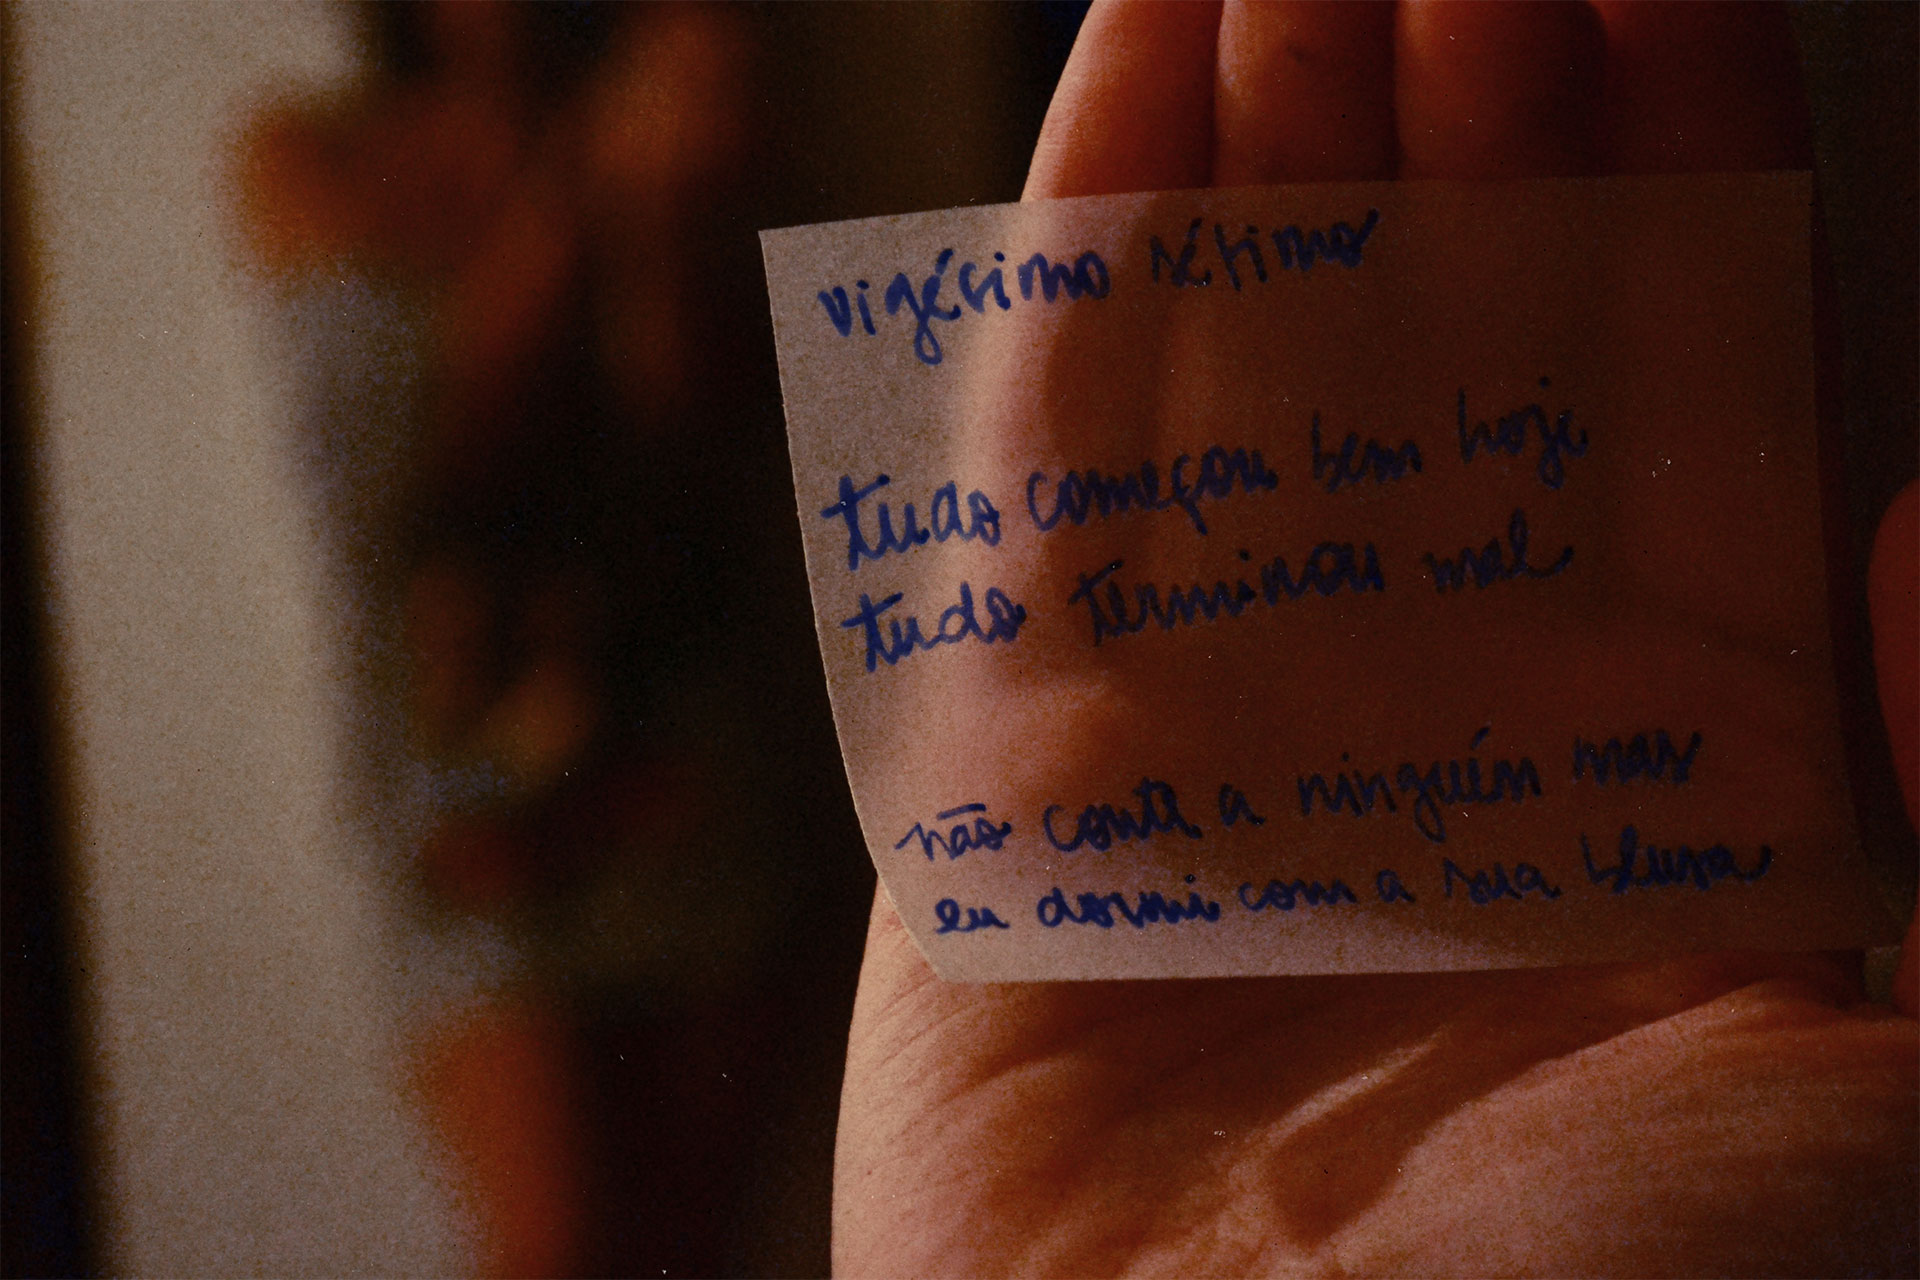 vigésimo sétimo
tudo começou bem hoje
tudo terminou mal
não conta a ninguém mas
eu dormi com a sua blusa